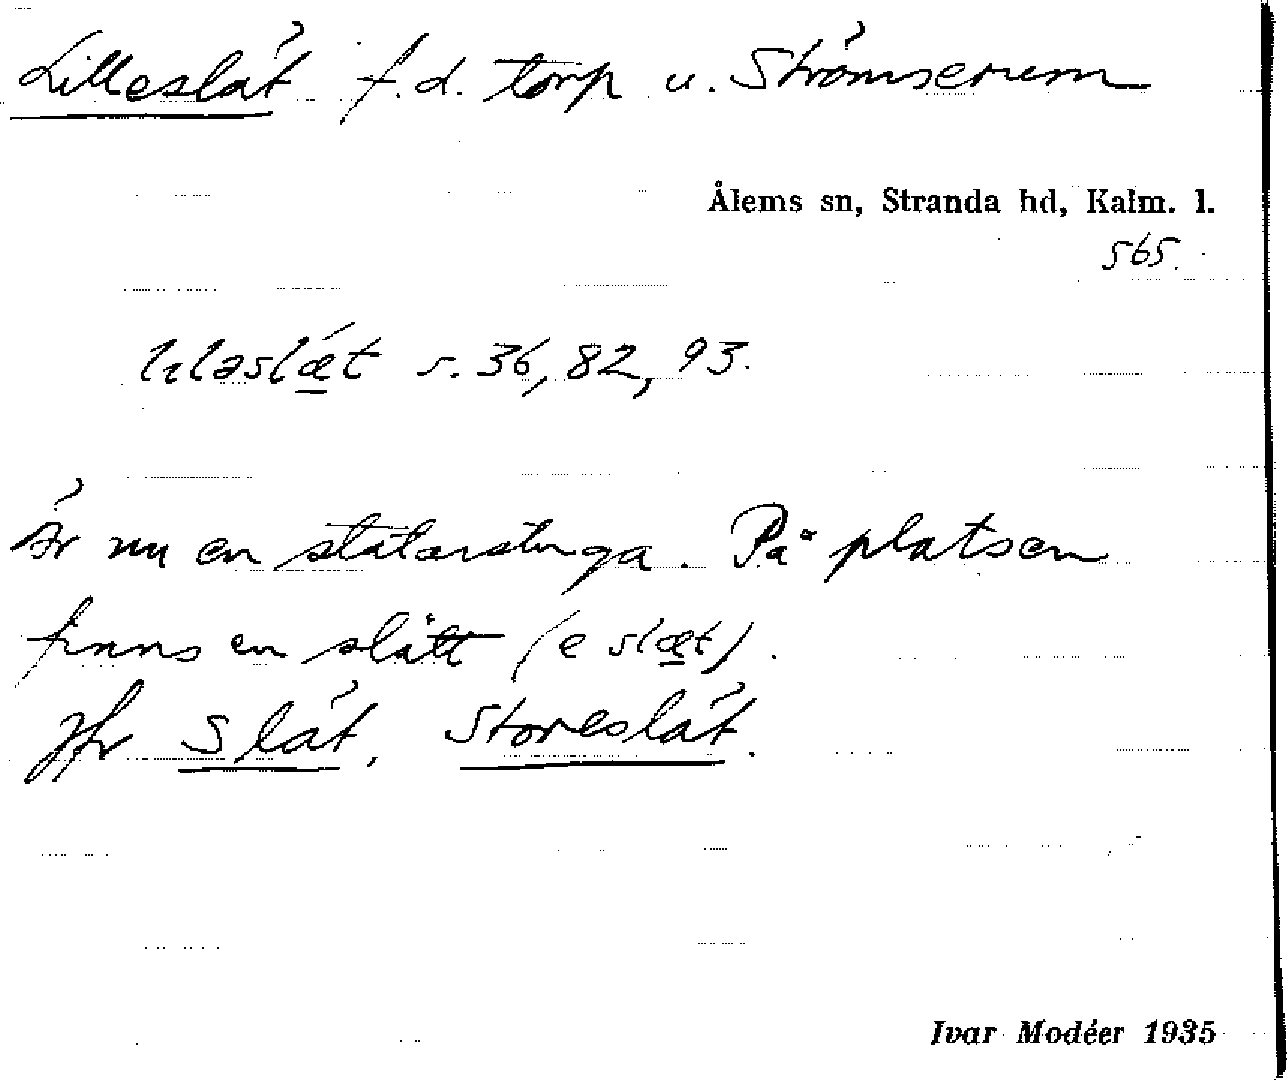 Lilleslät f.d. torp u. Strömserum
Ålems sn, Stranda hd, Kalm. l.
565.
s. 36, 82, 93.
Är nu en statarstuga. På platsen
finns en slått (e slæt).
Jfr Slät, Storeslät.
Ivar Modéer 1935